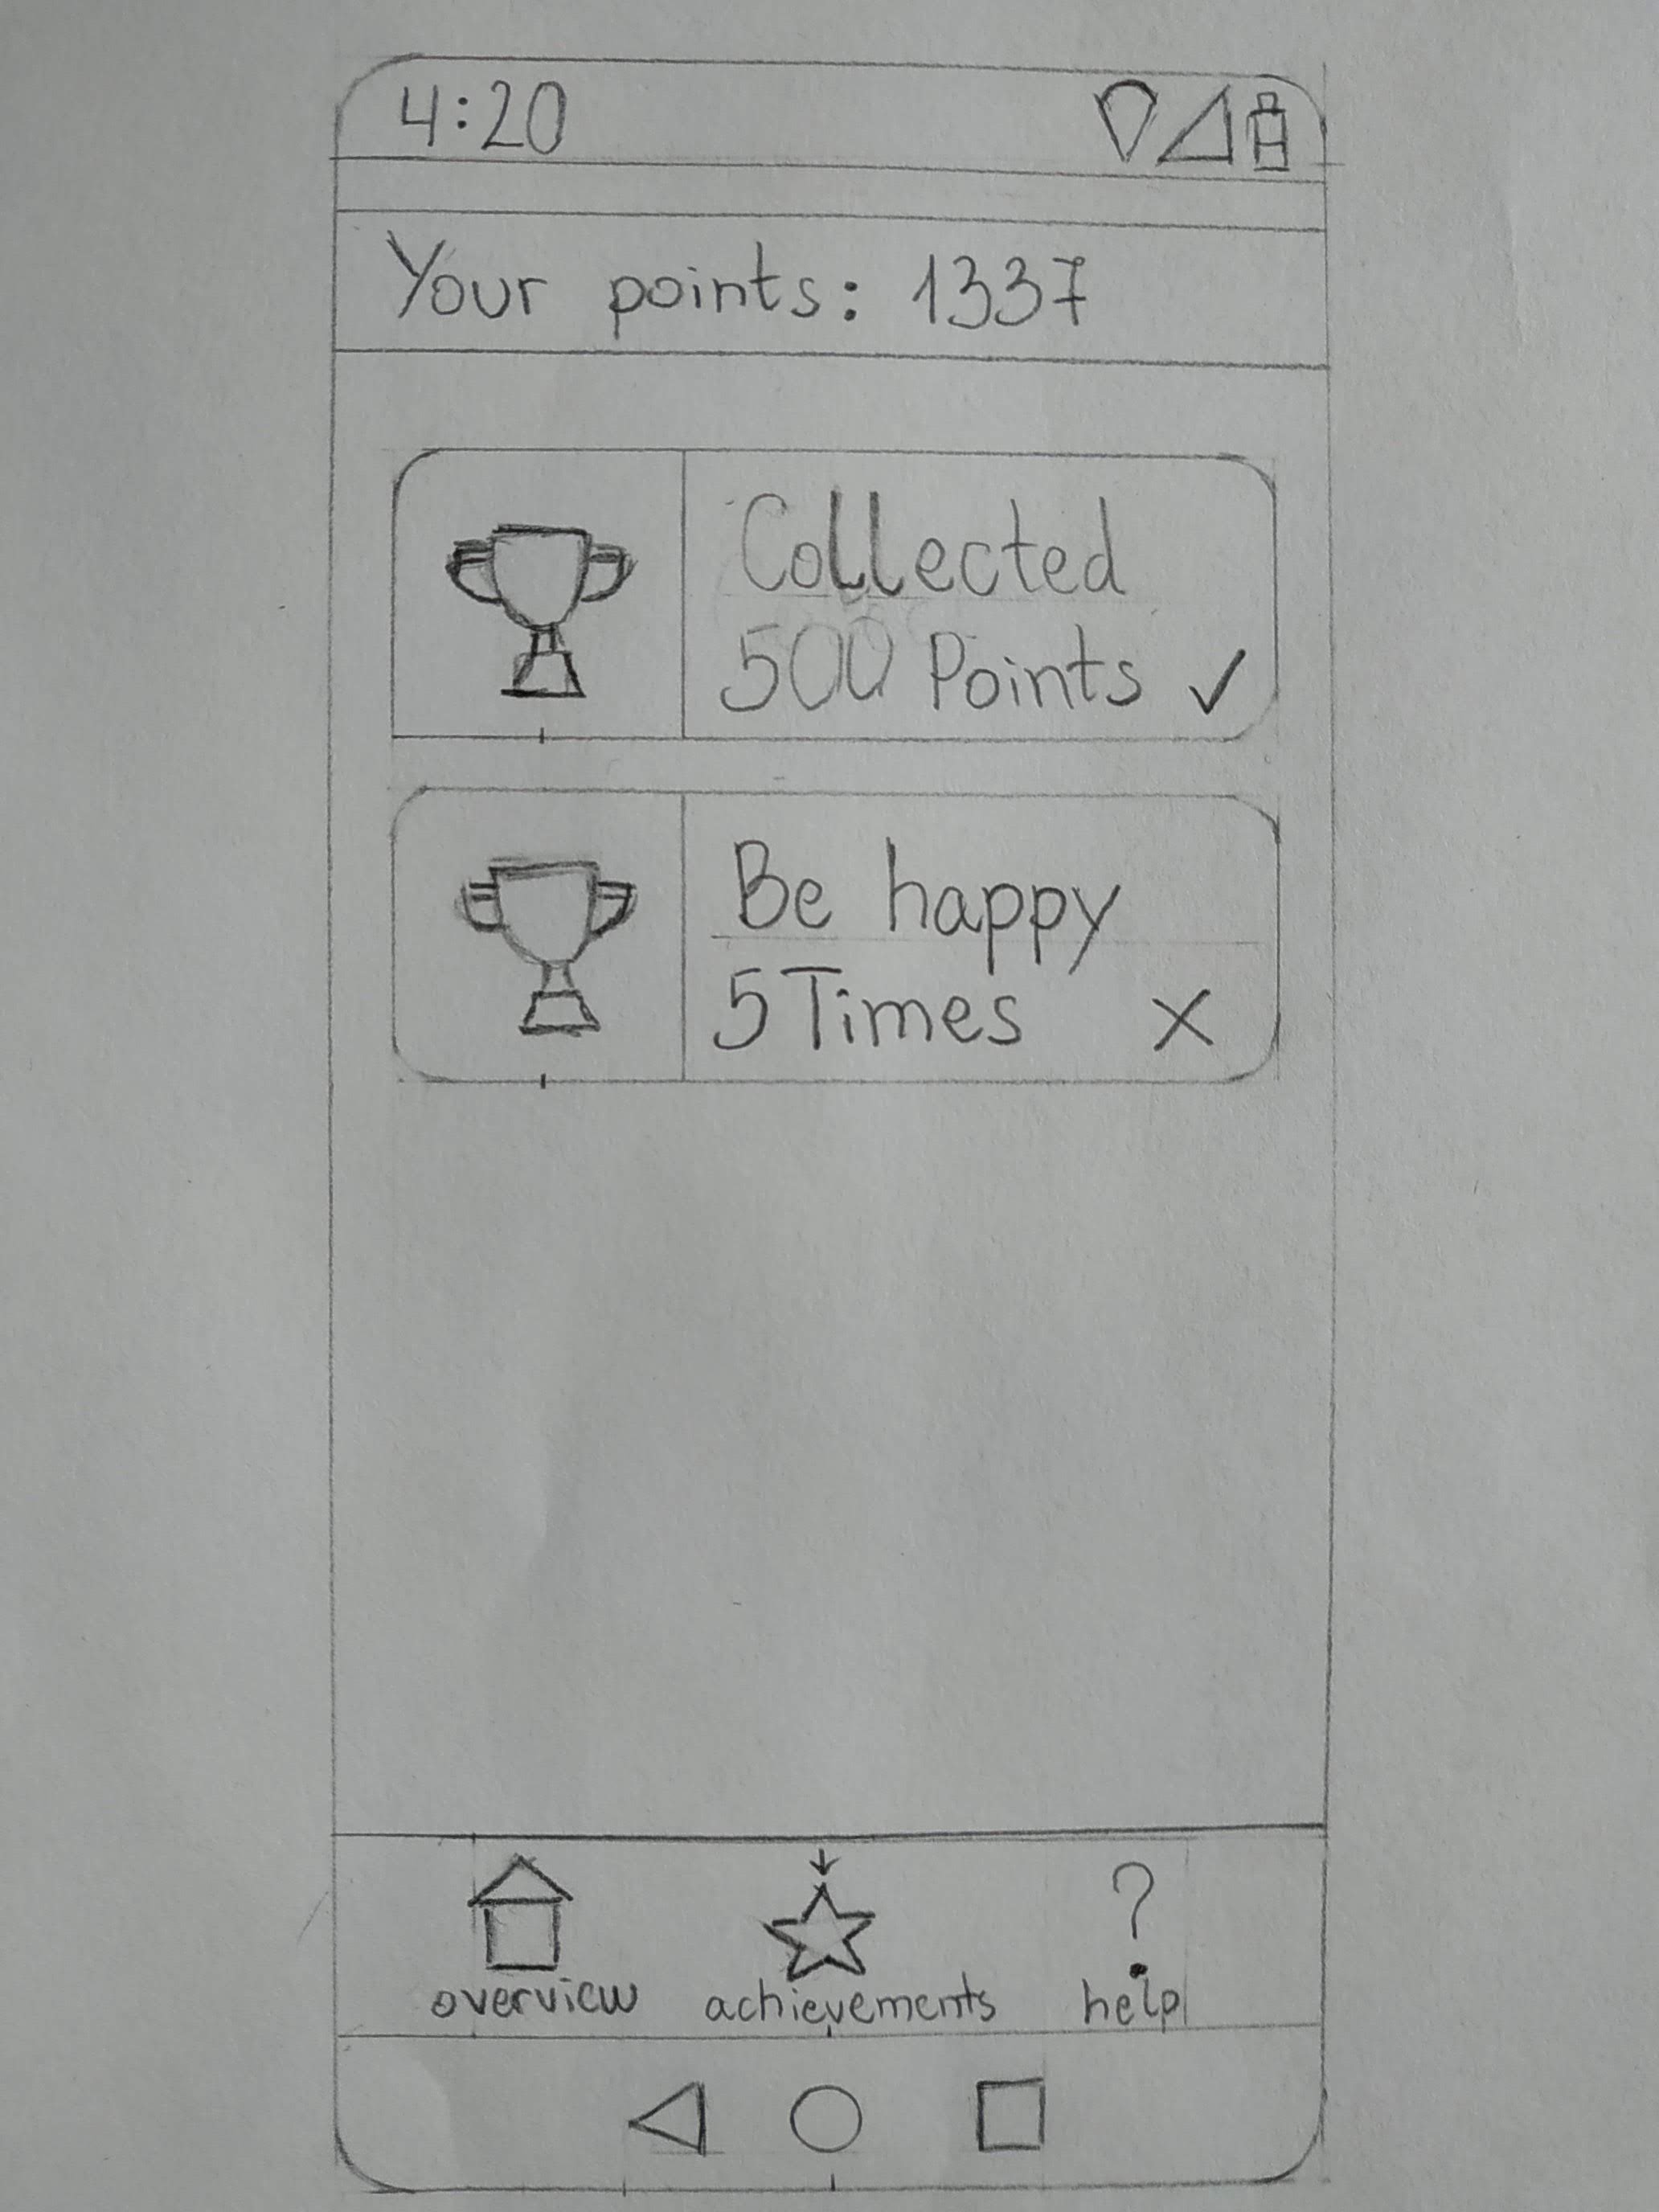 4:20
Your points: 1337
Collected
500 Points ✓
Be happy
5 Times X
?
overview achievements help